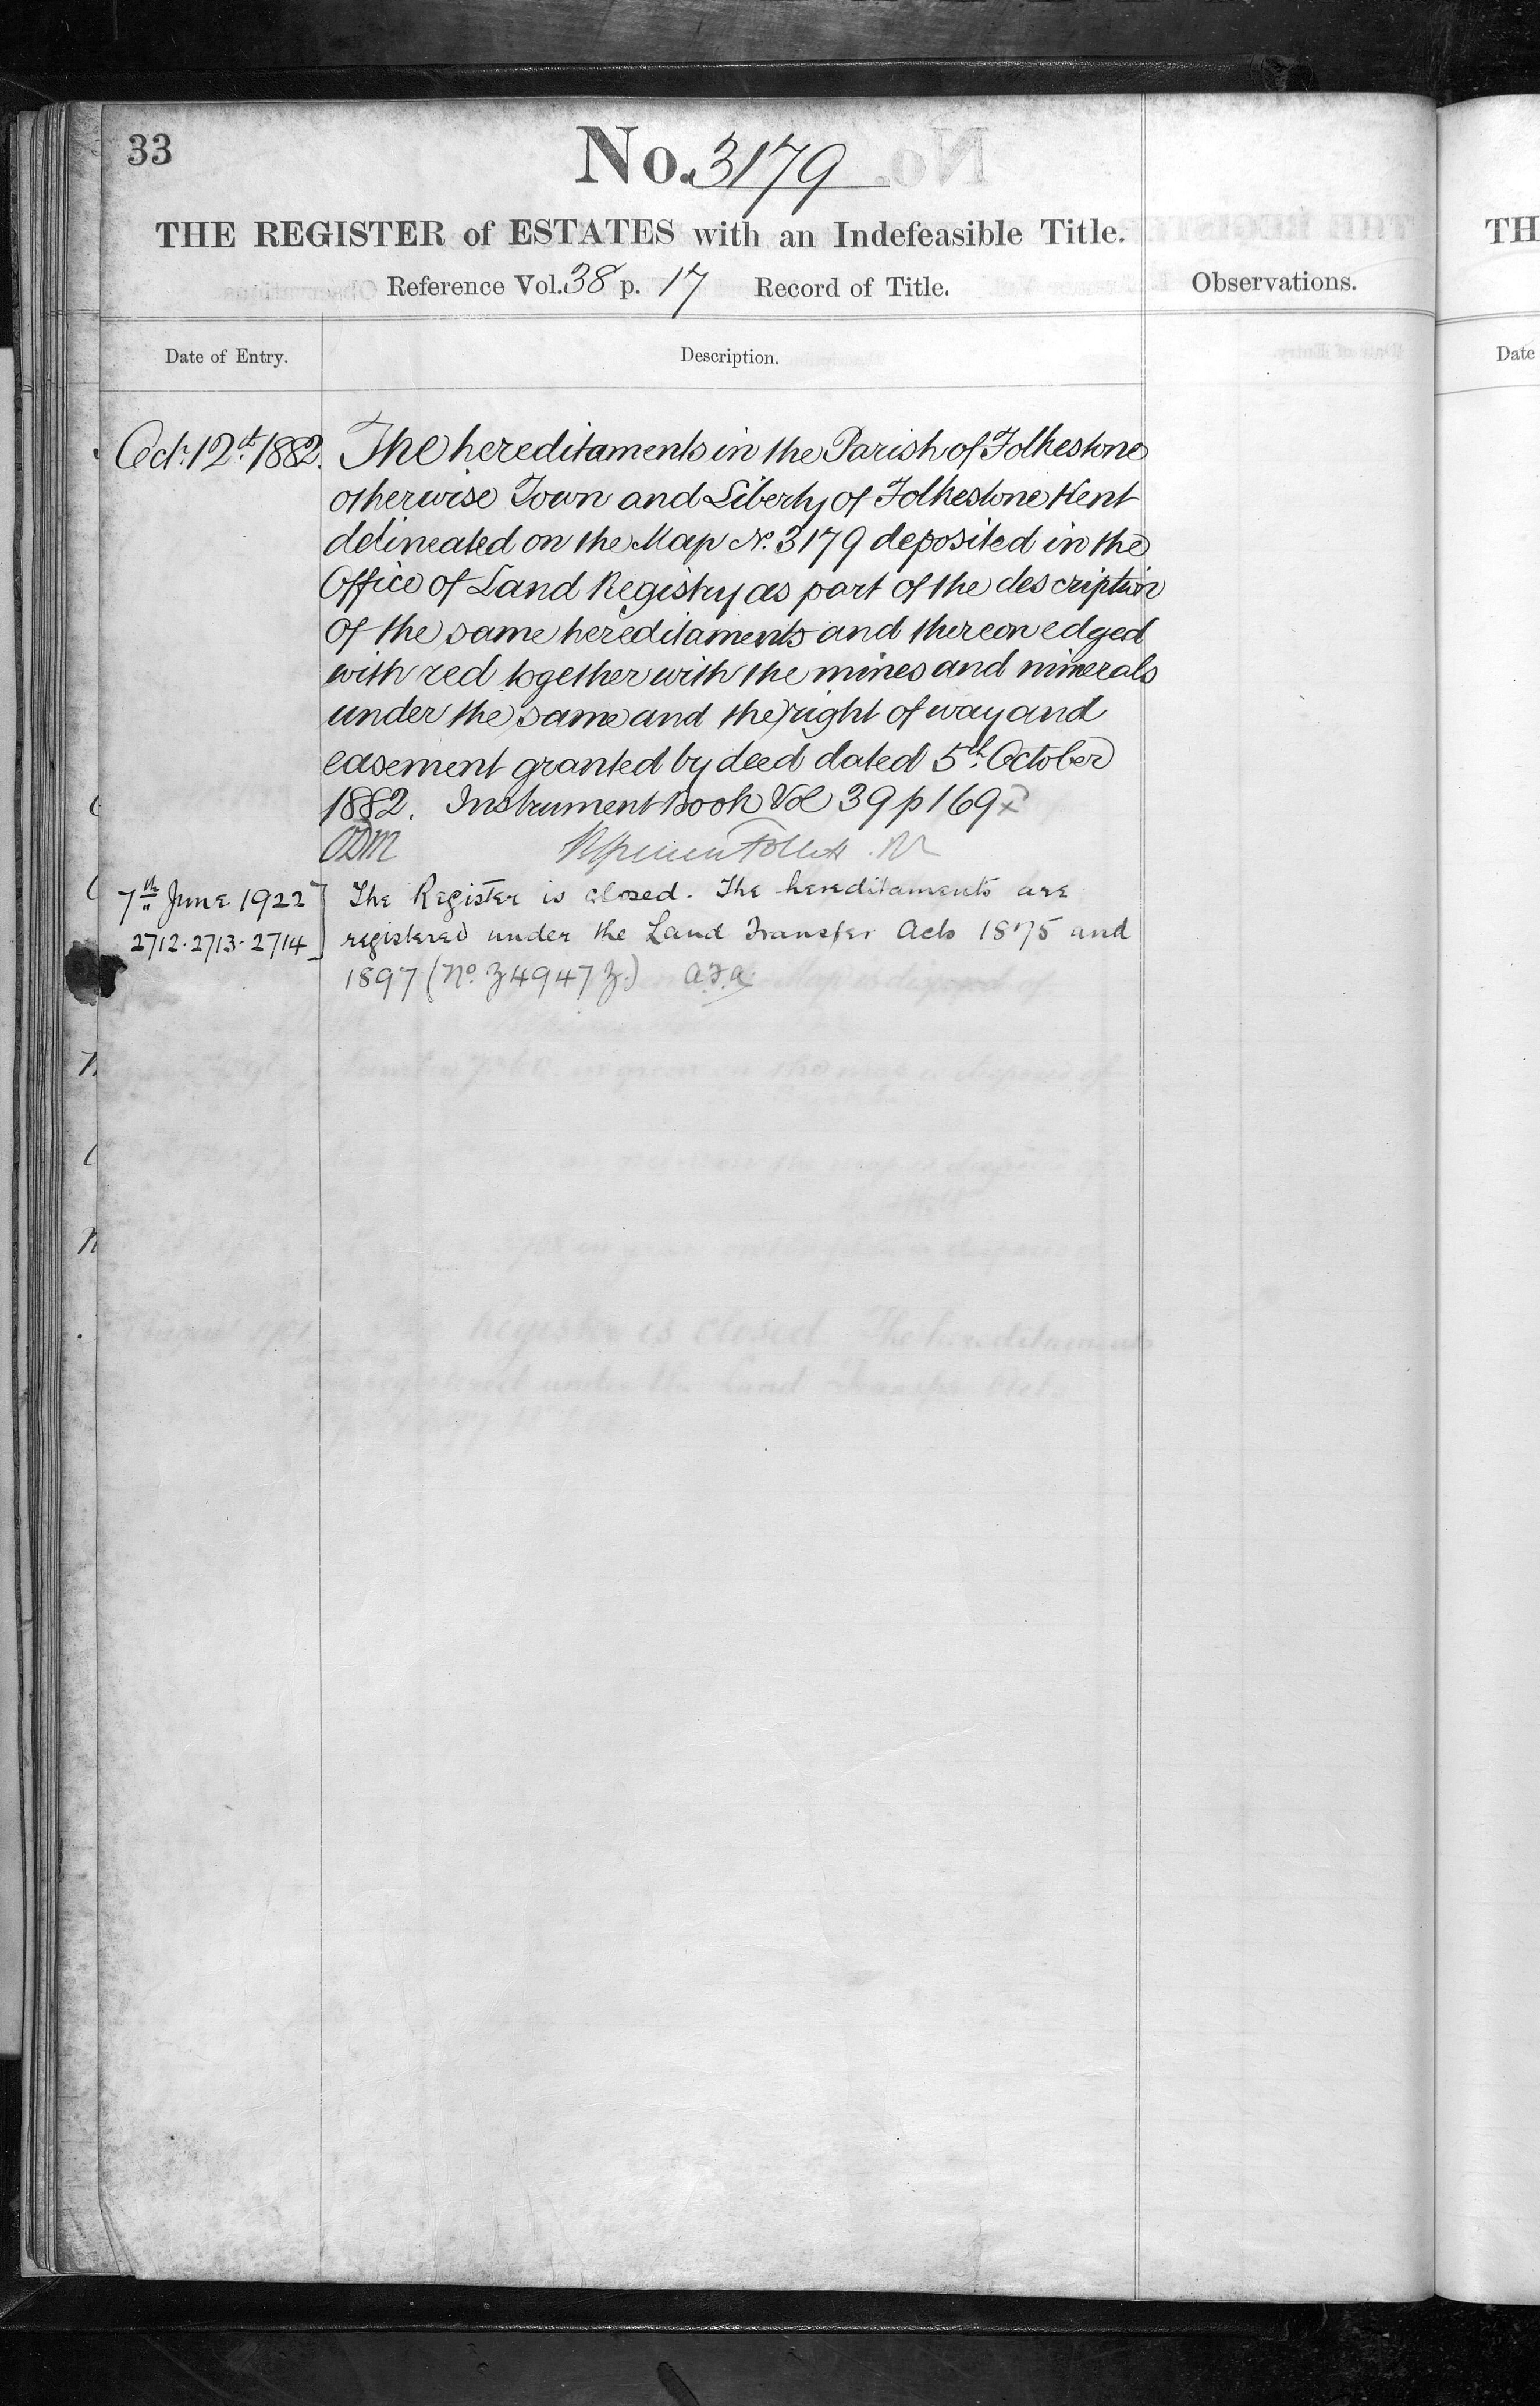 33
No. 3179
THE REGISTER of ESTATES with an Indefeasible Title.
Reference Vol. 38 p. 17 Record of Title.
Observations.
Date of Entry.
Description.
Oct. 12th 1882.
The hereditaments in the Parish of Folkestone
otherwise Town and Liberty of Folkestone Kent
delineated on the Map No. 3179 deposited in the
Office of Land Registry as part of the description
of the same hereditaments and thereon edged
with red together with the mines and minerals
under the same and the right of way and
easement granted by deed dated 5th October
1882. Instrument book Vol 39 p 169
7th June 1922
2712. 2713. 2714
The Register is closed. The hereditaments are
registered under the Land Transfer Acts 1875 and
1897 (No. Z4947Z.)
TH
Date